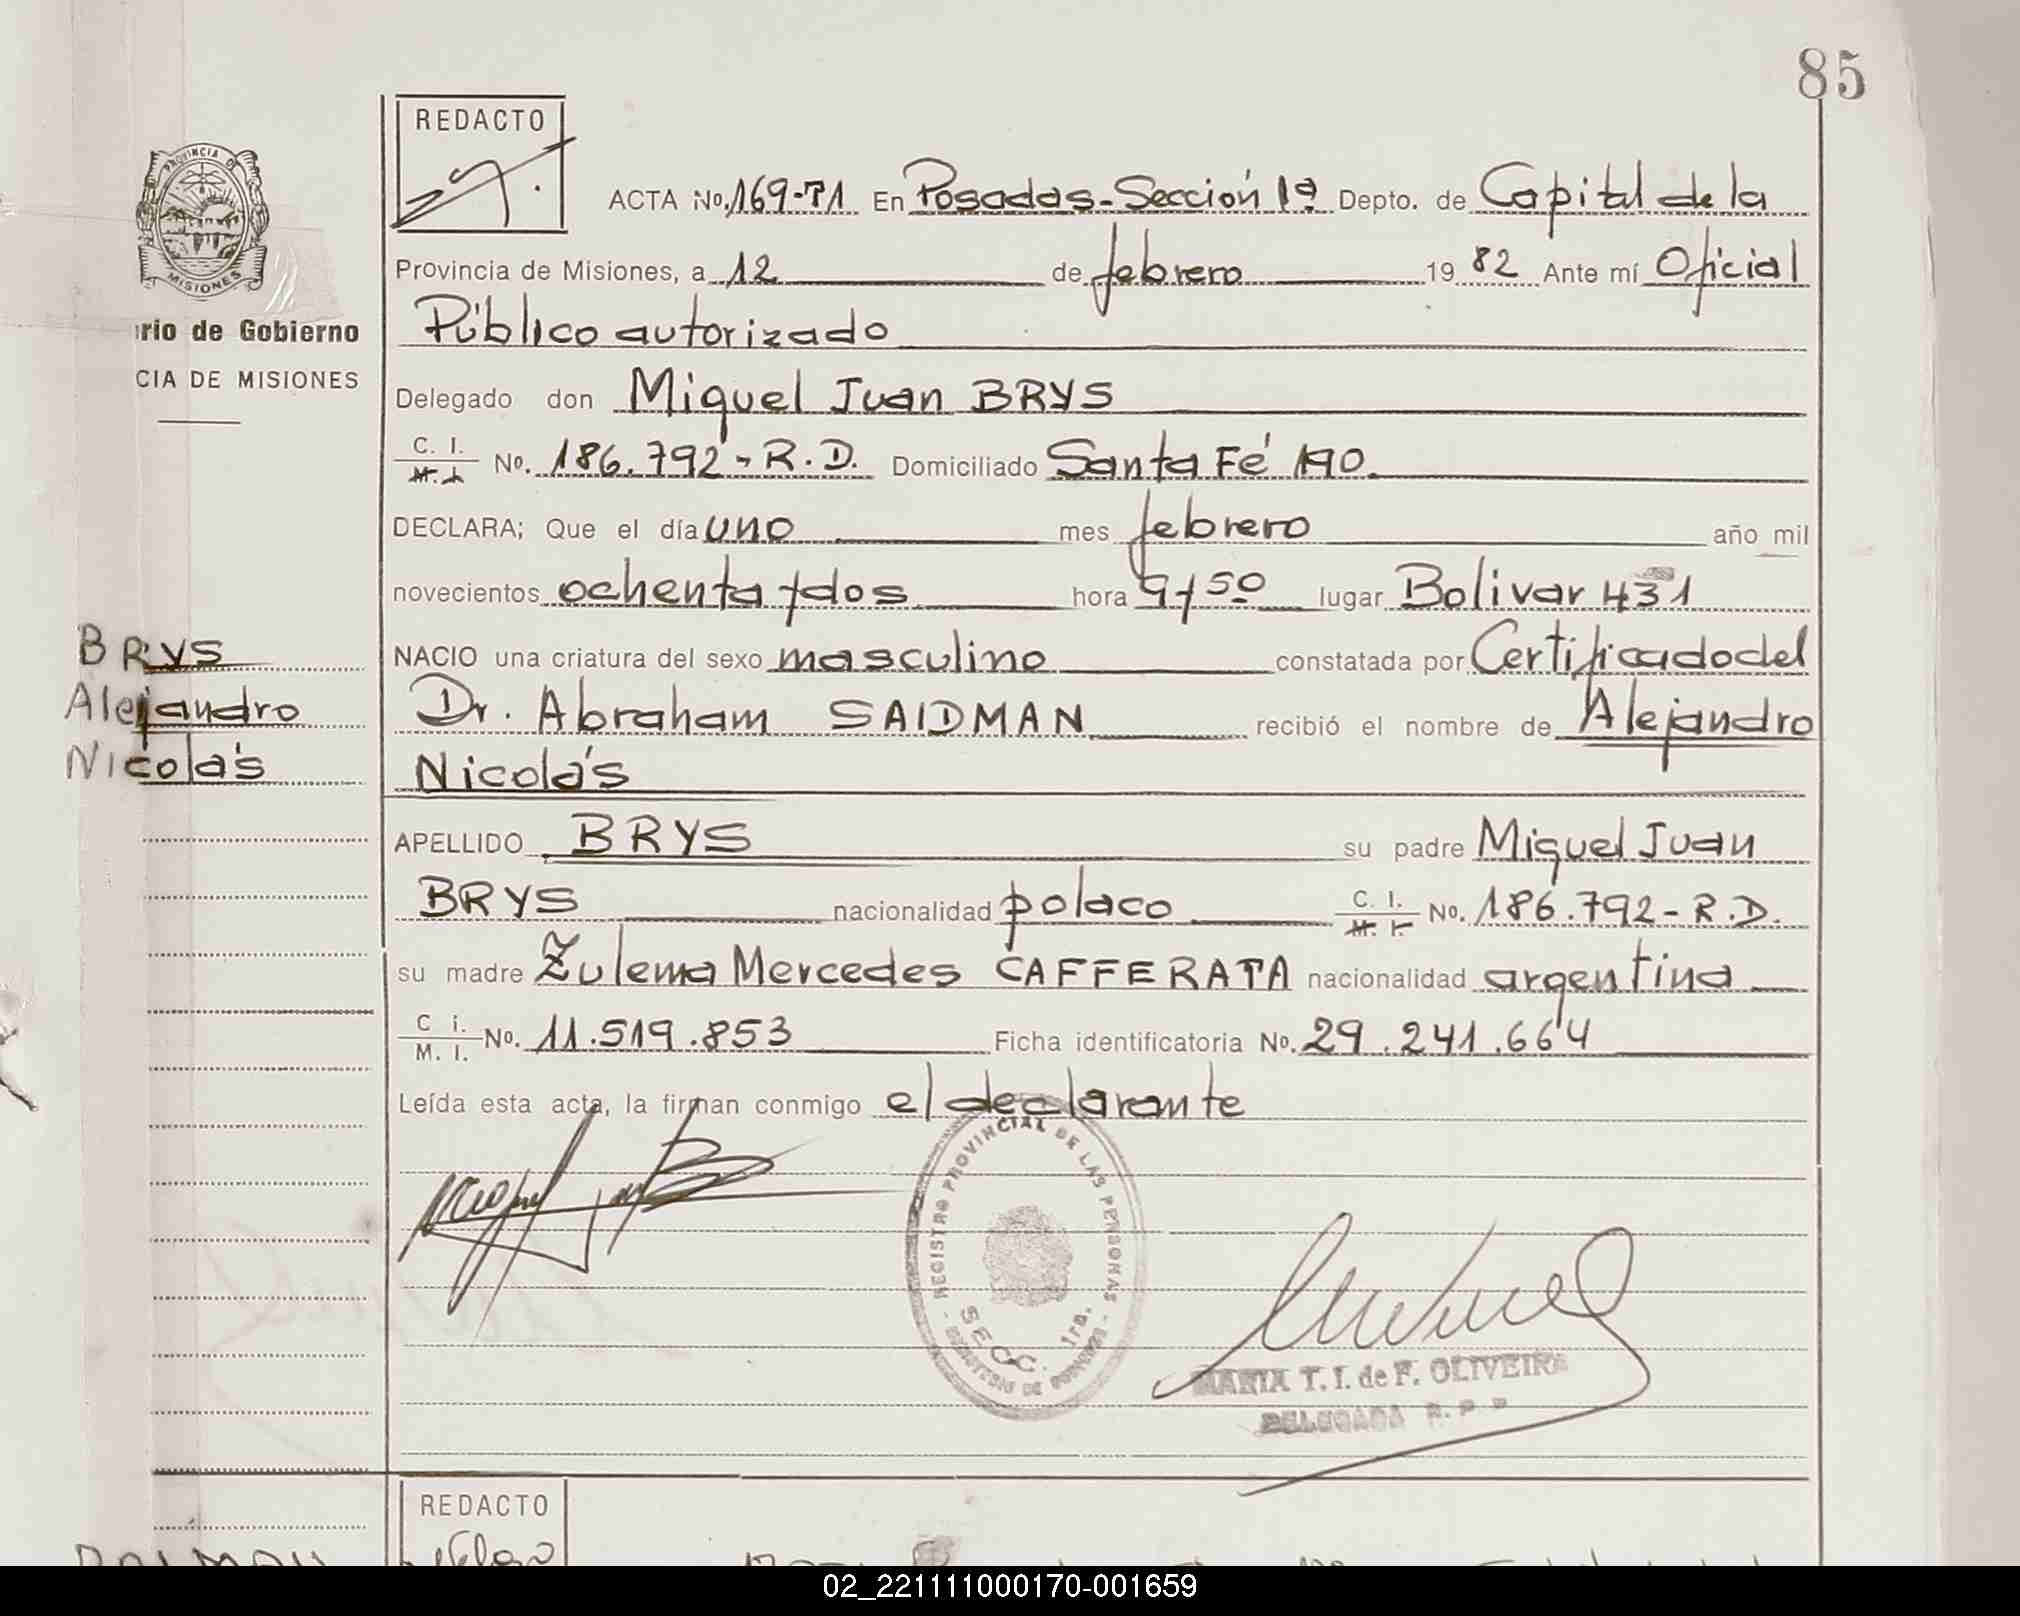 85
REDACTO
PROVINCIA DE
MISIONES
ACTA No. 169-T1 En Posadas-Sección 1ª Depto. de Capital de la
Provincia de Misiones, a 12 de febrero 19 82 Ante mí Oficial
rio de Gobierno
Público autorizado
CIA DE MISIONES
Delegado don Miguel Juan BRYS
C. I. M. I. No. 186.792-R.D. Domiciliado Santa Fé 190
DECLARA; Que el día uno mes febrero año mil
novecientos ochenta y dos hora 9 y 50 lugar Bolivar 431
BRYS
NACIO una criatura del sexo masculino constatada por Certificado del
Alejandro
Dr. Abraham SAIDMAN recibió el nombre de Alejandro
Nicolás
Nicolás
APELLIDO BRYS su padre Miguel Juan
BRYS nacionalidad polaco C. I. M. I. No. 186.792-R.D.
su madre Zulema Mercedes CAFFERATA nacionalidad argentina
C i. M. I. No. 11.519.853 Ficha identificatoria No. 29.241.664
Leída esta acta, la firman conmigo el declarante
REGISTRO PROVINCIAL DE LAS PERSONAS
SECC. 1ra.
MARIA T. I. de F. OLIVEIRA
DELEGADA R. P. P
REDACTO
02_221111000170-001659